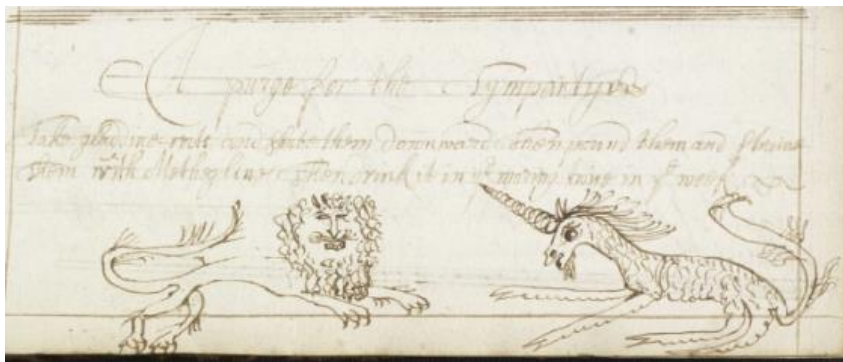 A purge for the Tympanyes
Take gladdine rots and shave them downward then pound them and straine
them with Metheglin & then drink it in ye morning twice in ye week